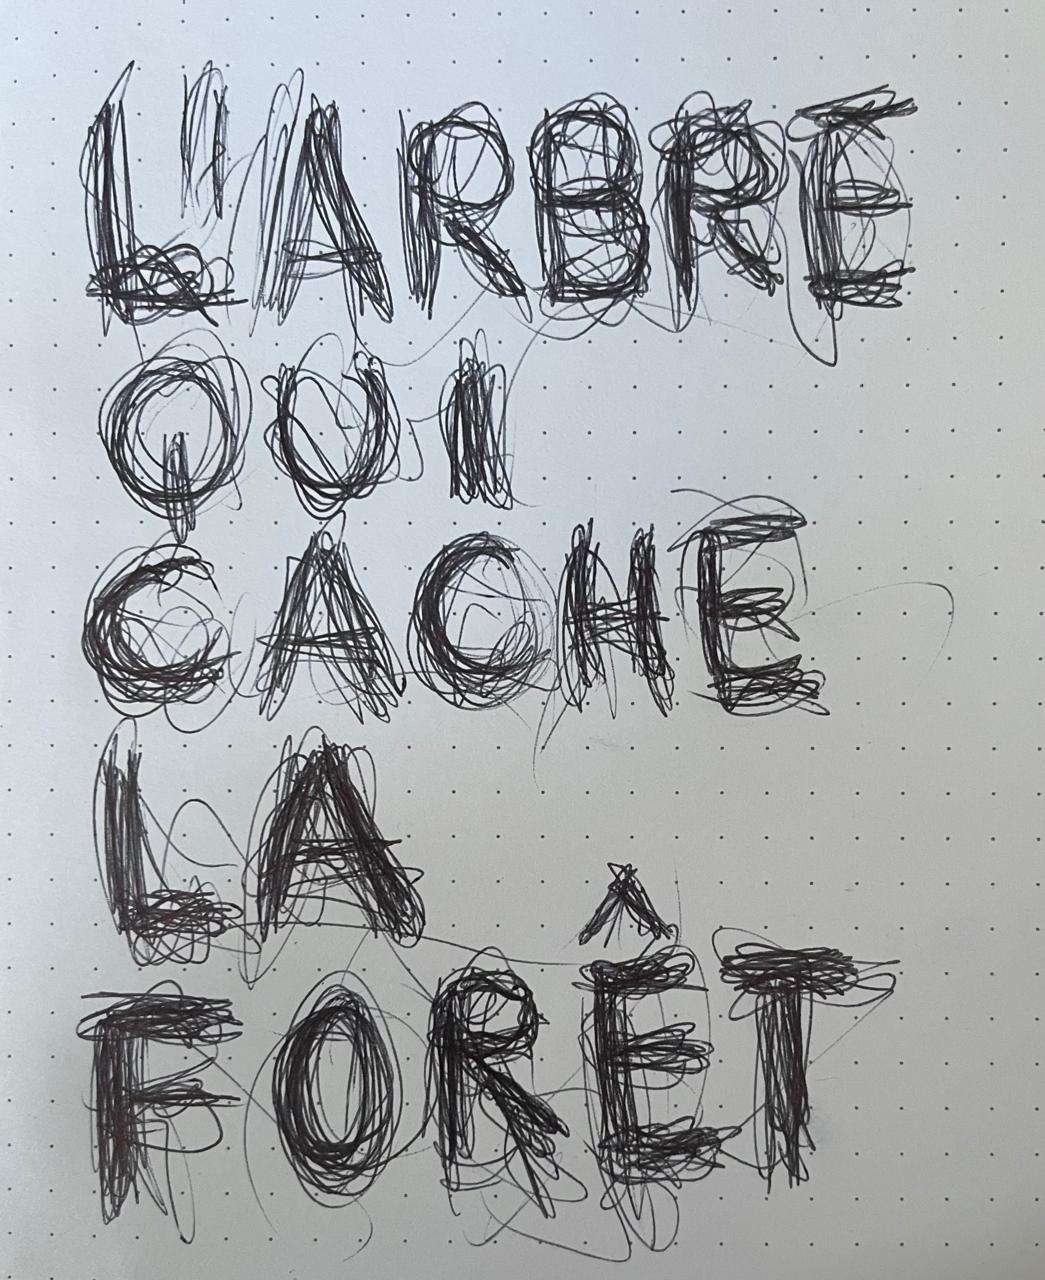 L'ARBRE
QUI
CACHE
LA
FORÊT